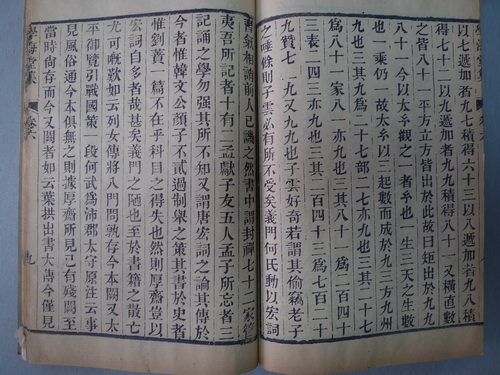 學海堂集
以七遞加者九七積得六十三以八遞加者九八積
得七十二以九遞加者九九積得八十一又橫直數
之皆八十一平方立方皆出於此故曰矩出於九九
八十一今以太玄觀之一者玄也一生三天之生數
也一乘仍一故太玄以一起數而成於九三方九州
也三其九爲二十七部二七亦九也三其二十七
爲八十一家八一亦九也三其八十一爲二百四十
三表二四三亦九也三其二百四十三爲七百二十
九贊七二九又九九也子雲好奇若謂其偷竊老子
之唾餘則子雲必有所不受矣義門何氏動以宏詞
習氣相誚前人已譏之然書中謂封禪七十二家管
夷吾所記者十有二孟獻子友五人孟子所忘者三
記誦之學勿强其所不知又謂唐宏詞之論其傳於
今者惟韓文公顏子不貳過制舉之策其書於史者
惟劉蕡一篇不在乎科目之得失也然則厚齋豈以
宏詞自多者哉甚矣義門之陋也至於書籍之散亡
尤可嘅歎如云列女傳將八門問孰存今本闕又太
平御覽引戰國策一段何武爲沛郡太守原注云事
見風俗通今本俱無之則據厚齋所見已有殘闕至
當時尚存而今又闕者如云葉拱出書大傳今僅見
學海堂集
卷六
九